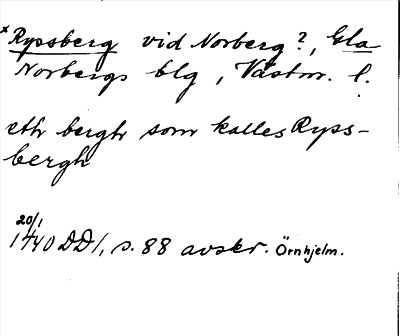 * Ryssberg vid Norberg?, Gla
Norbergs blg, Västm. l.
eth bergh som kalles Ryss-
bergh
20/1
1440 DD1, s. 88 avskr. Örnhjelm.